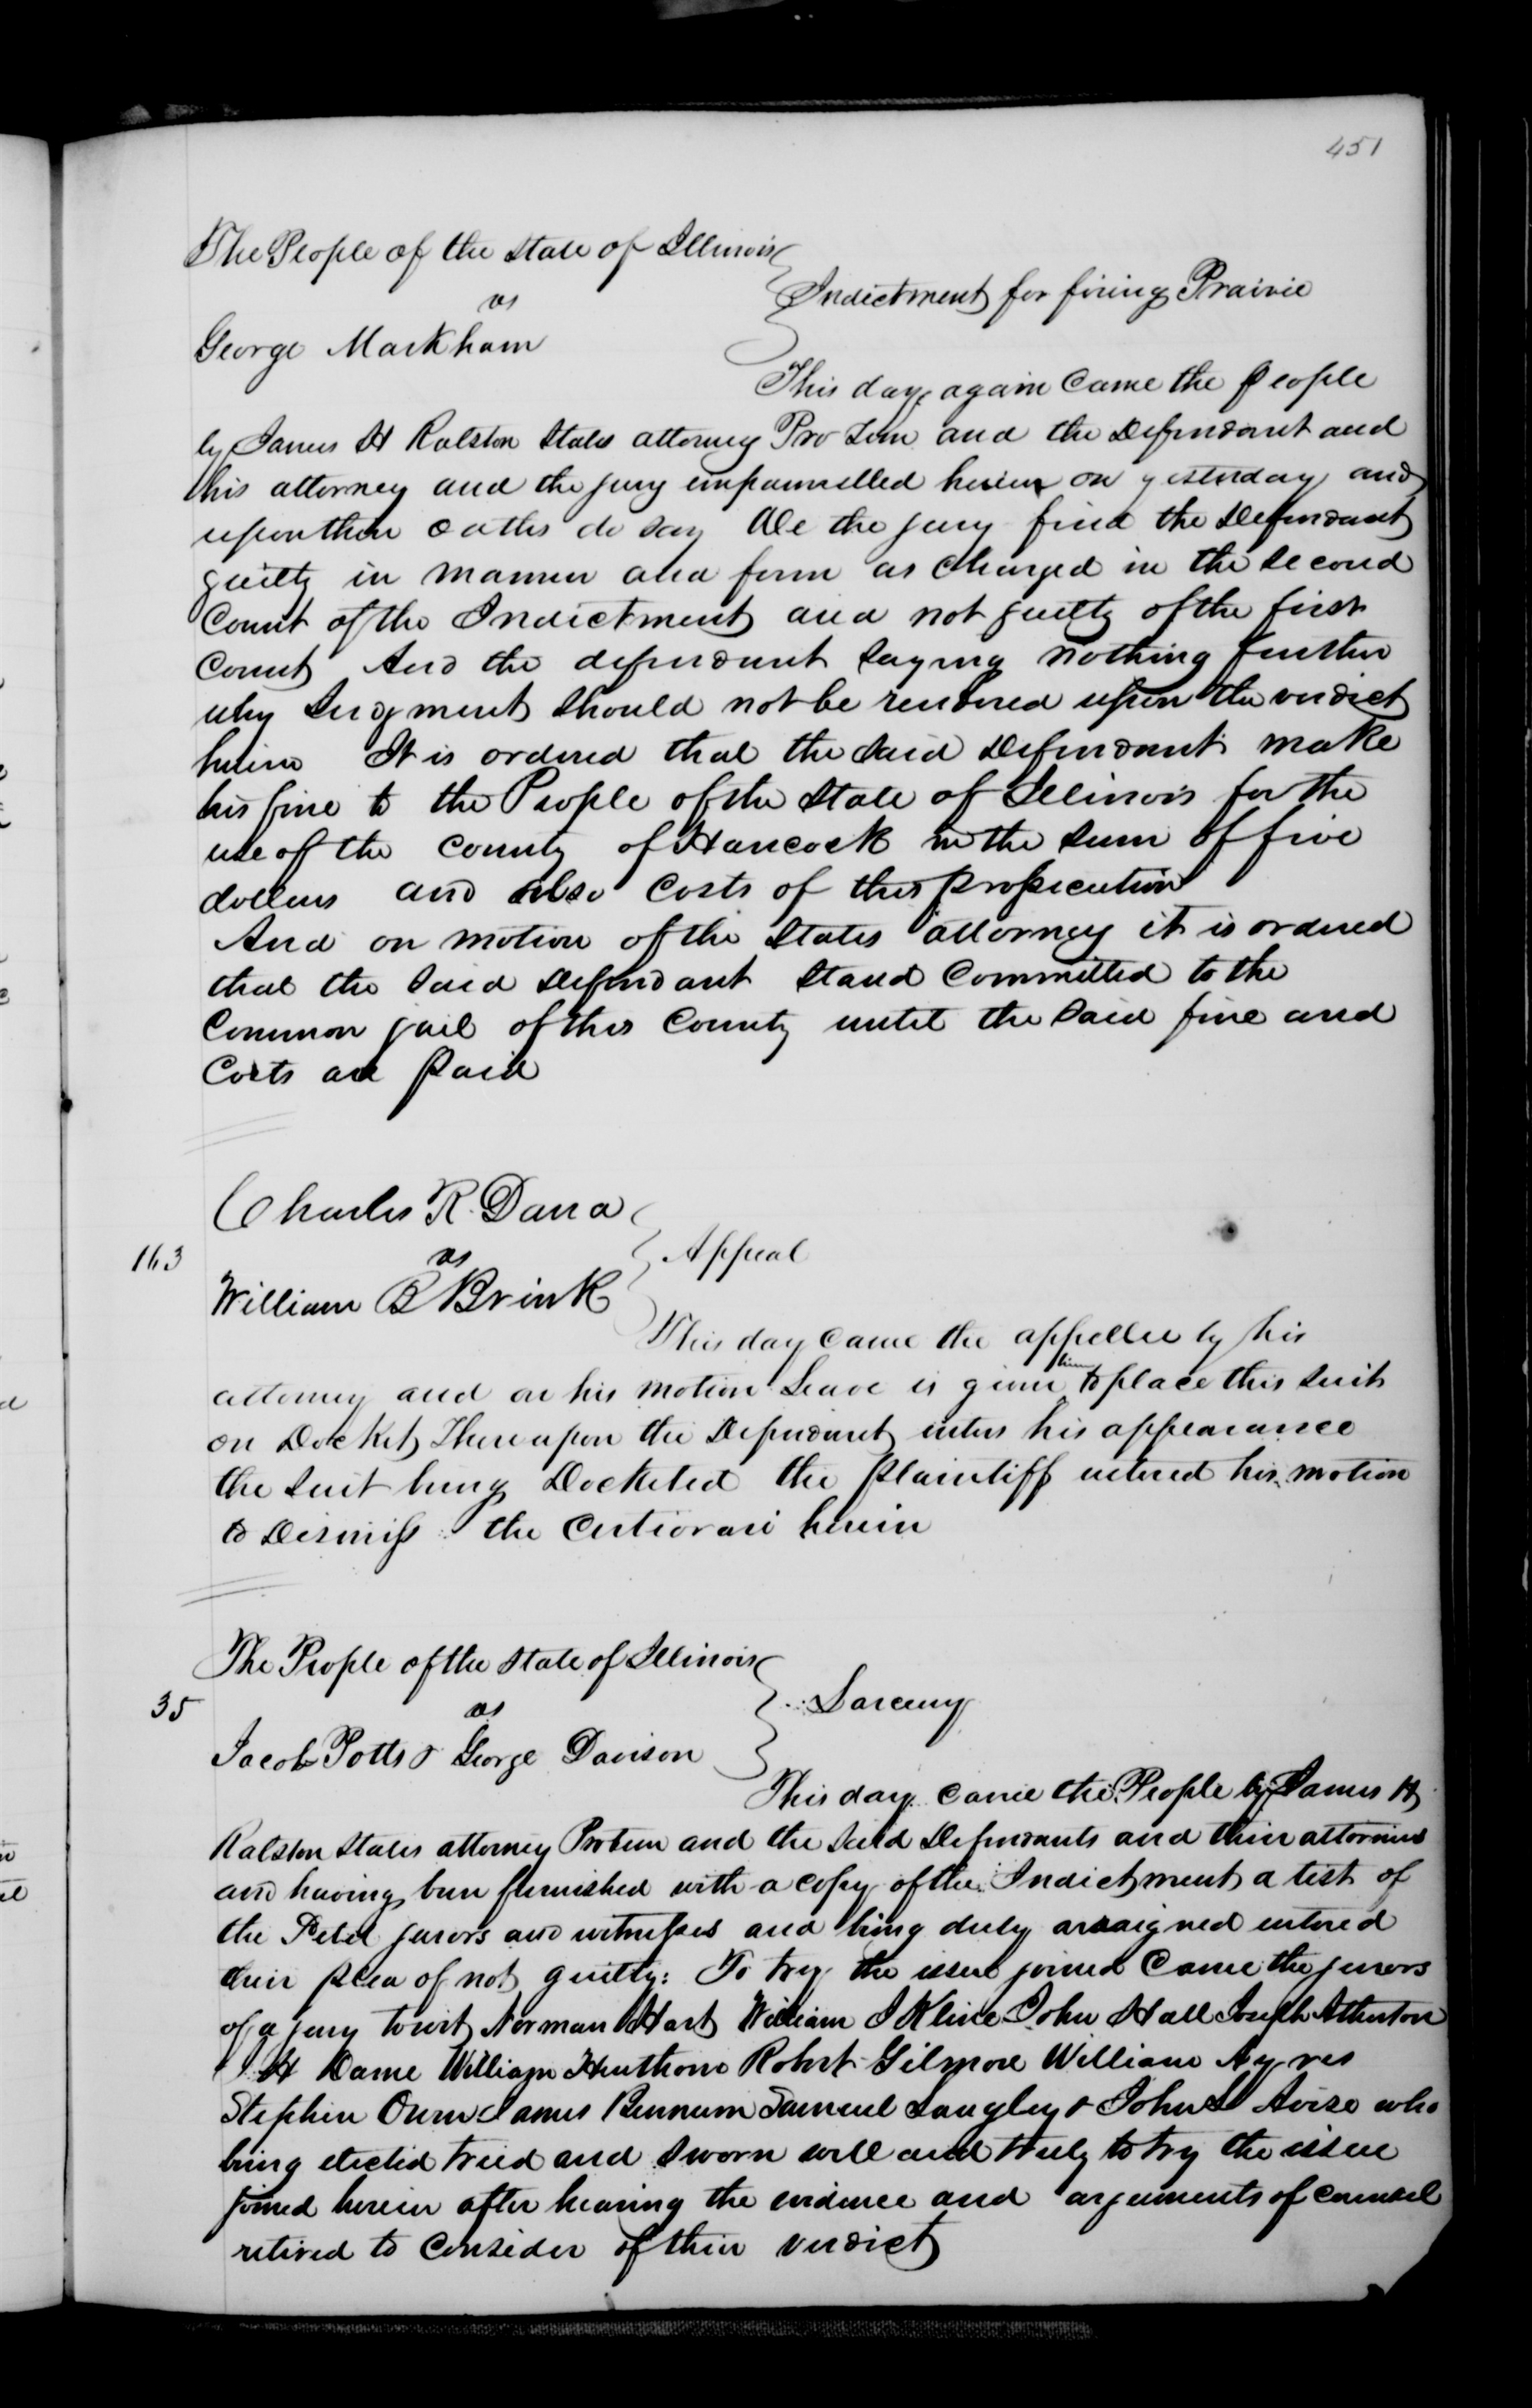 451
The People of the State of Illinois
vs
Indictment for firing Prairie
George Markham
This day again Came the People
by James H Ralston States attorney Pro Tem and the Defendant and
his attorney and the jury empannelled herein on yesterday and
upon their oaths do say We the jury find the Defendant
guilty in manner and form as Charged in the Second
Count of the Indictment and not guilty of the first
Count And the defendant Saying nothing further
why Judgment Should not be rendered upon the verdict
herein It is ordered that the Said Defendant make
his fine to the People of the State of Illinois for the
use of the County of Hancock in the Sum of five
dollars and also Costs of this prosecution
And on motion of the States attorney it is ordered
that the Said Defendant Stand Committed to the
Common jail of this County until the Said fine and
Costs are paid
Charles R. Dana
163
vs
Appeal
William B Brink
This day Came the appellee by his
attorney and on his motion Leave is given him to place this Suit
on Docket Thereupon the Defendant enters his appearance
the Suit being Docketed the Plaintiff entered his motion
to Dismiss the Certiorari herein
The People of the State of Illinois
35
vs
Larceny
Jacob Potts & George Davison
This day Came the People by James H
Ralston States attorney Protem and the Said Defendants and their attornies
and having been furnished with a copy of the Indictment a list of
the Petit jurors and witnesses and being duly arraigned entered
their plea of not guilty: To try the issue joined Came the jurors
of a jury towit Norman Hart William J Kline John Hall Joseph Atherton
H Dame William Henthorn Robert Gilmore William Ayres
Stephen Owen James Bennum Samuel Langley & John L Avise who
being elected tried and Sworn well and truly to try the issue
joined herein after hearing the evidence and arguments of Counsel
retired to Consider of their verdict